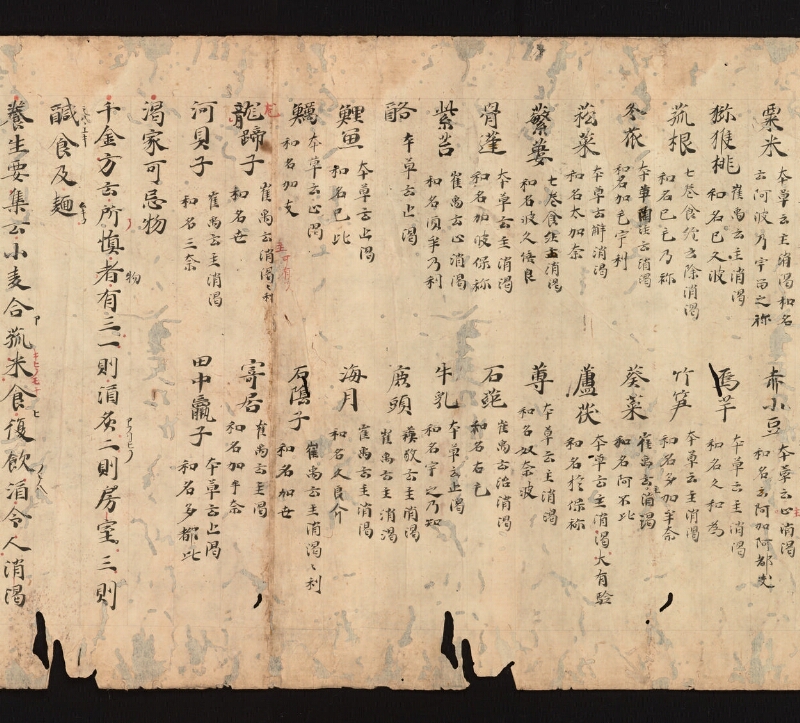 粟米 本草云主消渴和名
云阿波乃宇留之祢
赤小豆 本草云止消渴
和名云阿加阿都支
獼猴桃 崔禹云主消渴
和名己久波
烏芋 本草云主消渴
和名久和為
菰根 七巻食経云除消渴
和名己毛乃祢
竹笋 本草云主消渴
和名多加牟奈
冬苽 消渴
和名加毛宇利
葵菜 崔禹云主消渴
和名阿不比
菘菜 本草云解消渴
和名太加奈
蘆茯 本草云主消渴大有验
和名於保祢
蘩蔞 七巻食経云主消渴
和名波久倍良
蓴 本草云主消渴
和名奴奈波
骨蓬 本草云主消渴
和名加波保祢
石 崔禹云治消渴
和名
紫苔 崔禹云止消渴
和名須牟乃利
牛乳 本草云止渴
和名宇之乃知
酪 本草云止渴
鹿頭 云主消渴
崔禹云主消渴
鯉魚 本草云止渴
和名己比
海月 崔禹云主消渴
和名久良介
鱧 本草云止渴
和名加
石陰子 崔禹云主消渴〻利
和名加世
龍蹄子 崔禹云消渴〻利
和名世
寄居 崔禹云主渴
和名加牟奈
河貝子 崔禹云主消渴
和名三奈
田中蠃子 本草云止渴
和名多都比
渴家可忌物
千金方云所慎者有三一則酒炙二則房室三則
鹹食及麺
養生要集云小麦合菰米食復飲酒令人消渴